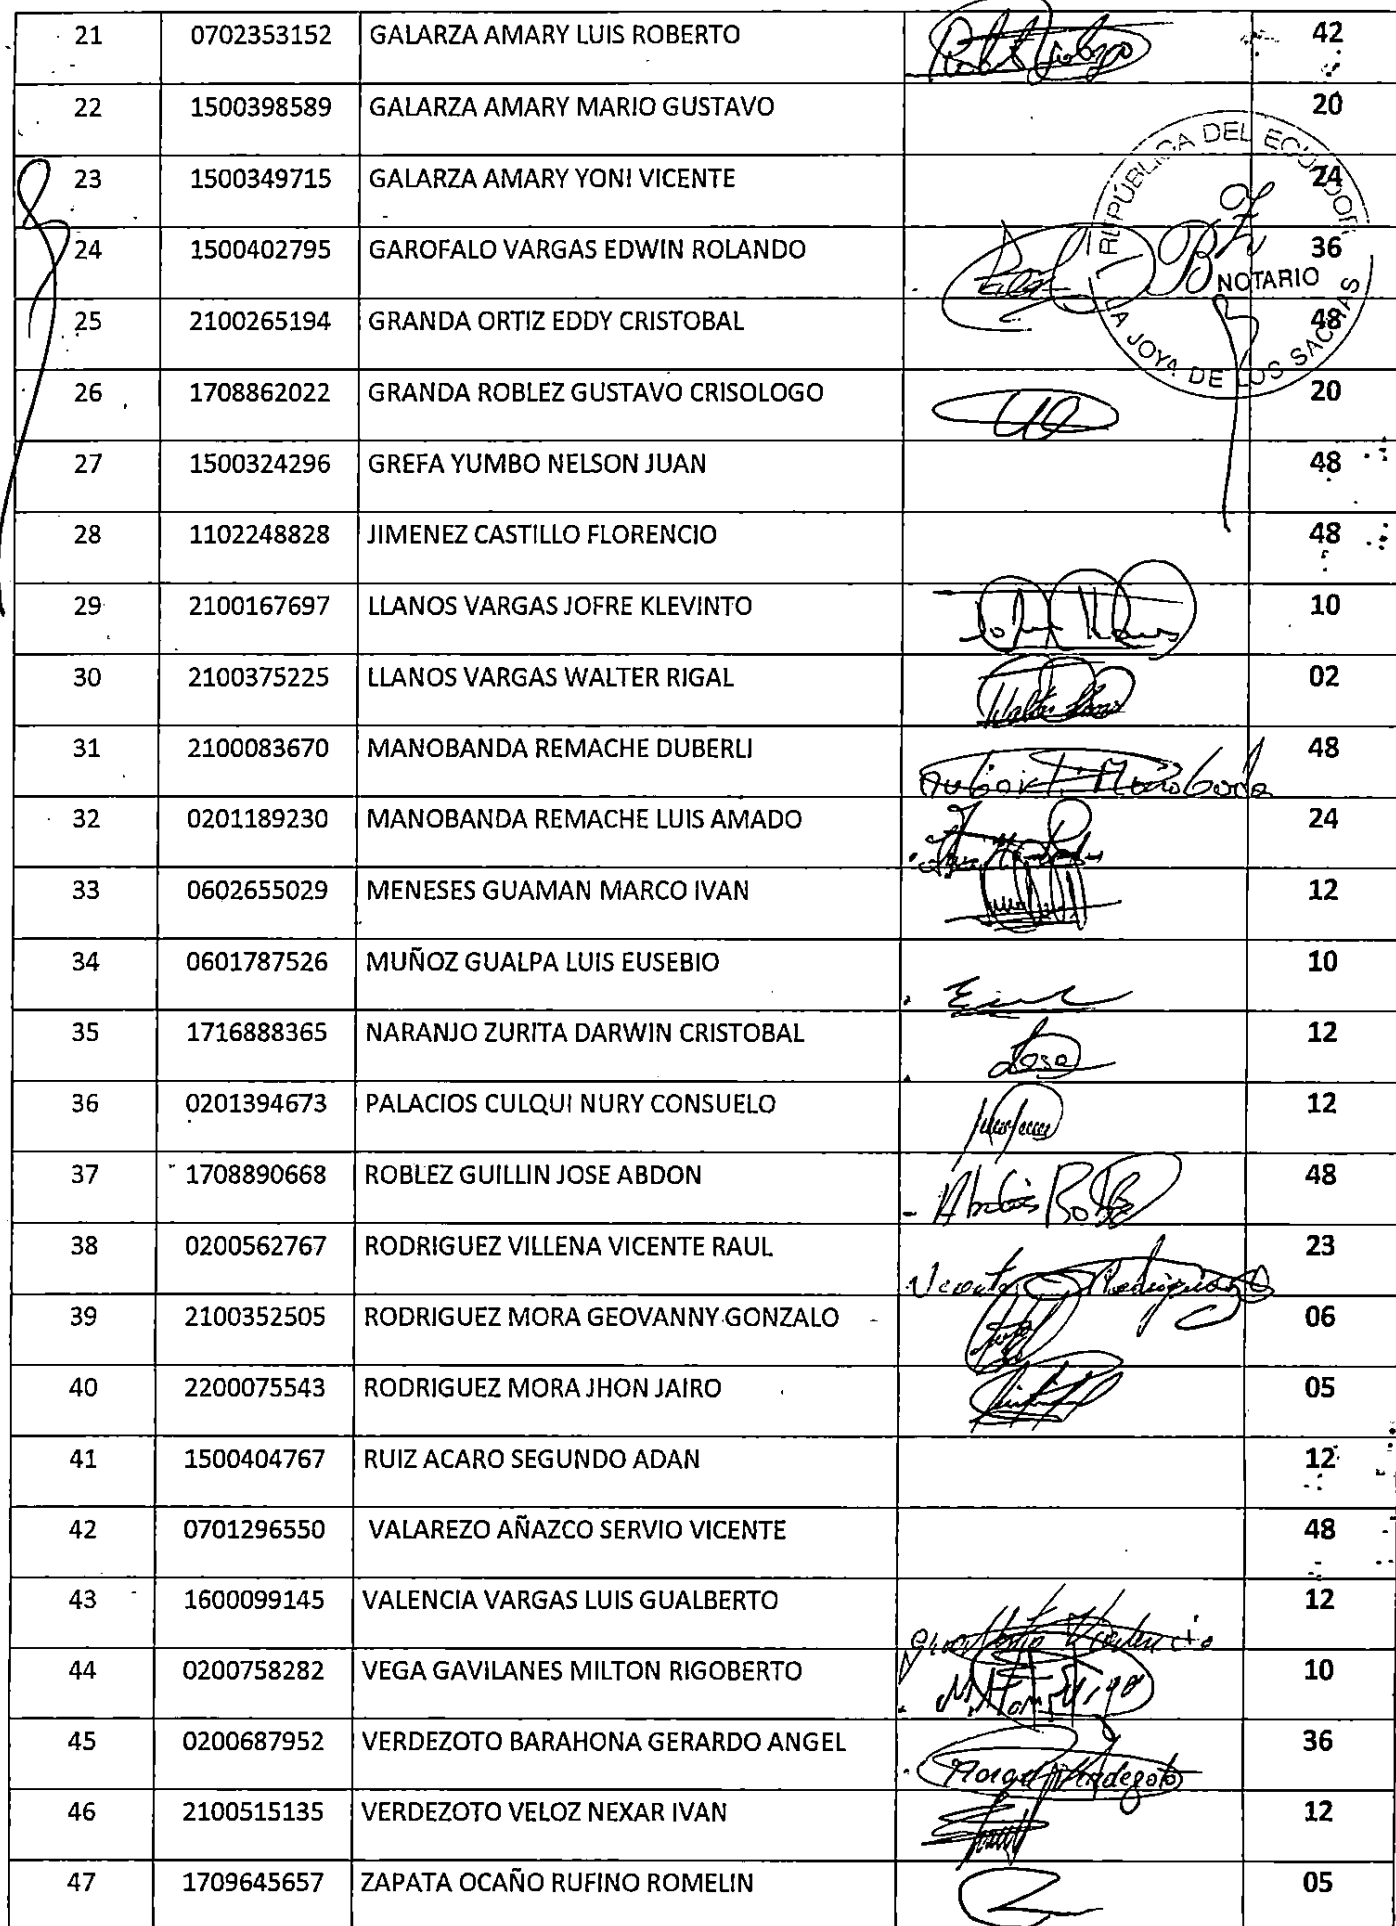 21 0702353152 GALARZA AMARY LUIS ROBERTO 42
22 1500398589 GALARZA AMARY MARIO GUSTAVO 20
23 1500349715 GALARZA AMARY YONI VICENTE 24
24 1500402795 GAROFALO VARGAS EDWIN ROLANDO 36
25 2100265194 GRANDA ORTIZ EDDY CRISTOBAL 48
REPÚBLICA DEL ECUADOR
NOTARIO
LA JOYA DE LOS SACHAS
26 1708862022 GRANDA ROBLEZ GUSTAVO CRISOLOGO 20
27 1500324296 GREFA YUMBO NELSON JUAN 48
28 1102248828 JIMENEZ CASTILLO FLORENCIO 48
29 2100167697 LLANOS VARGAS JOFRE KLEVINTO 10
30 2100375225 LLANOS VARGAS WALTER RIGAL 02
31 2100083670 MANOBANDA REMACHE DUBERLI 48
32 0201189230 MANOBANDA REMACHE LUIS AMADO 24
33 0602655029 MENESES GUAMAN MARCO IVAN 12
34 0601787526 MUÑOZ GUALPA LUIS EUSEBIO 10
35 1716888365 NARANJO ZURITA DARWIN CRISTOBAL 12
36 0201394673 PALACIOS CULQUI NURY CONSUELO 12
37 1708890668 ROBLEZ GUILLIN JOSE ABDON 48
38 0200562767 RODRIGUEZ VILLENA VICENTE RAUL 23
39 2100352505 RODRIGUEZ MORA GEOVANNY GONZALO 06
40 2200075543 RODRIGUEZ MORA JHON JAIRO 05
41 1500404767 RUIZ ACARO SEGUNDO ADAN 12
42 0701296550 VALAREZO AÑAZCO SERVIO VICENTE 48
43 1600099145 VALENCIA VARGAS LUIS GUALBERTO 12
44 0200758282 VEGA GAVILANES MILTON RIGOBERTO 10
45 0200687952 VERDEZOTO BARAHONA GERARDO ANGEL 36
46 2100515135 VERDEZOTO VELOZ NEXAR IVAN 12
47 1709645657 ZAPATA OCAÑO RUFINO ROMELIN 05